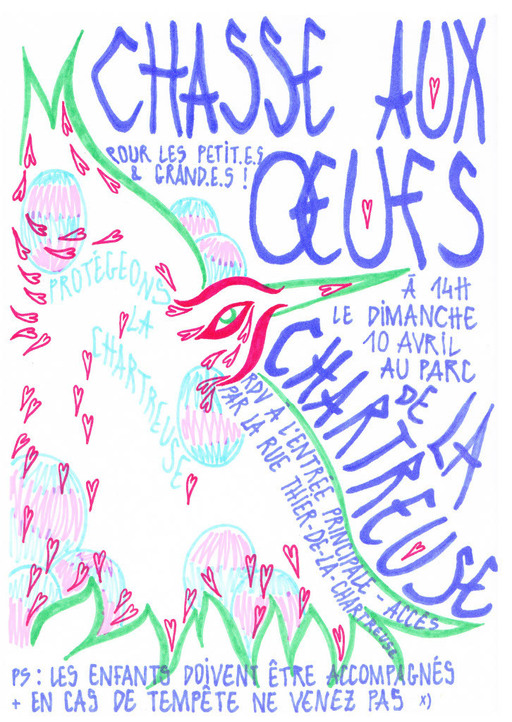 CHASSE AUX
ŒUFS
POUR LES PETIT.E.S
& GRAND.E.S !
À 14H
LE DIMANCHE
10 AVRIL
AU PARC
DE LA
CHARTREUSE
PROTÉGEONS
LA
CHARTREUSE
RDV À L'ENTRÉE PRINCIPALE - ACCÈS
PAR LA RUE THIER-DE-LA-CHARTREUSE
PS : LES ENFANTS DOIVENT ÊTRE ACCOMPAGNÉS
+ EN CAS DE TEMPÊTE NE VENEZ PAS x)